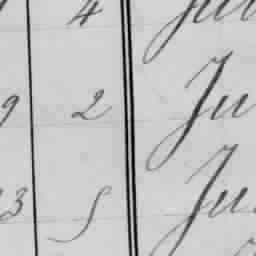 4 Ju
9 2 Ju
3 5 Ju